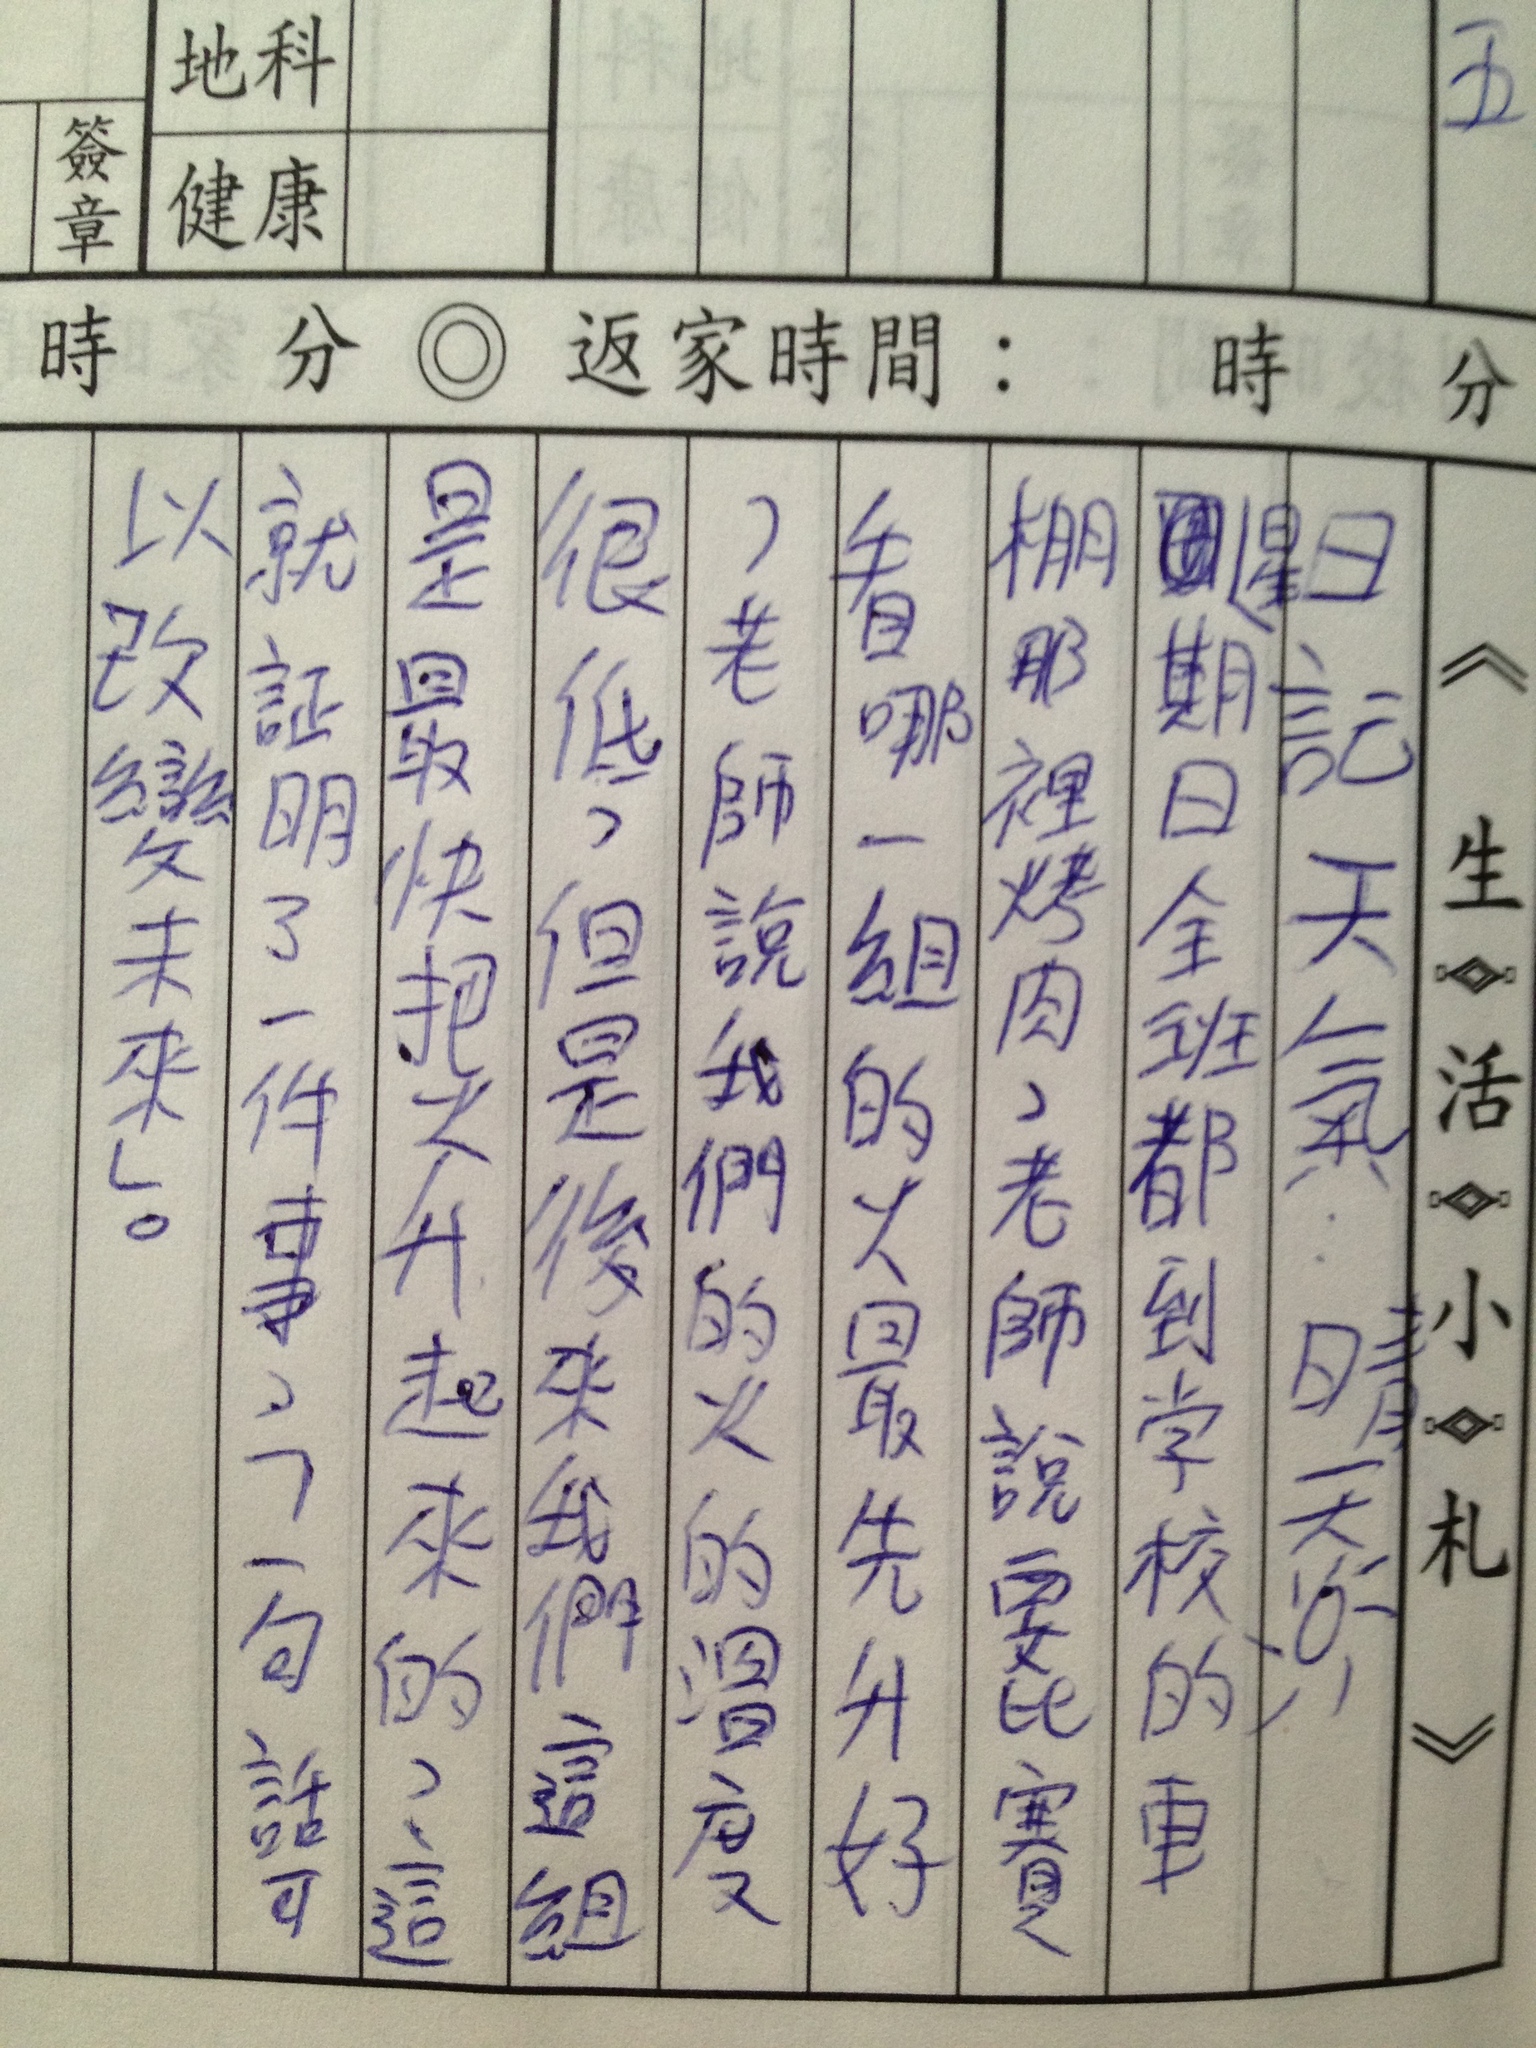 五
地科
健康
簽章
時 分 ◎ 返家時間： 時 分
《生活小札》
日記 天氣：晴天
星期日全班都到学校的車
棚那裡烤肉，老師說要比賽
看哪一組的火最先升好
，老師說我們的火的溫度
很低，但是後來我們這組
是最快把火升起來的，這
就証明了一件事，「一句話可
以改變未來」。